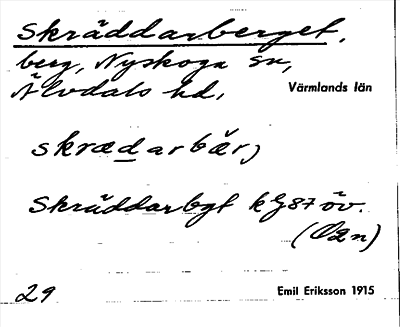 Skräddarberget,
berg, Nyskoga sn,
Älvdals hd,
Värmlands län
skrædarbær,
Skräddarbgt kg87 öv.
29
Emil Eriksson 1915